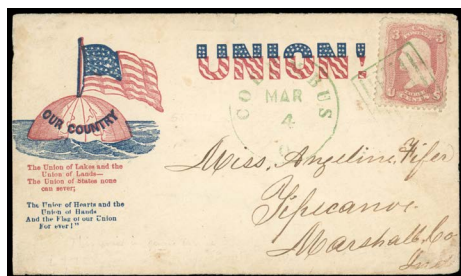 UNION!
3 3
COLUMBUS
MAR
4
OUR COUNTRY
The Union of Lakes and the
Union of Lands—
The Union of States none
can sever;
The Union of Hearts and the
Union of Hands
And the Flag of our Union
For ever!"
Miss. Angeline Fifer
Tipecanoe
Marshall Co
Ind